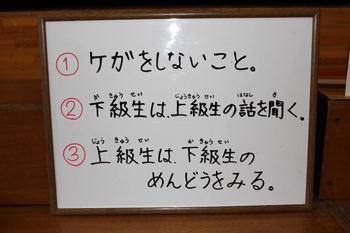 ① ケガをしないこと。
② 下級生は、上級生の話を聞く。
③ 上級生は、下級生の
めんどうをみる。